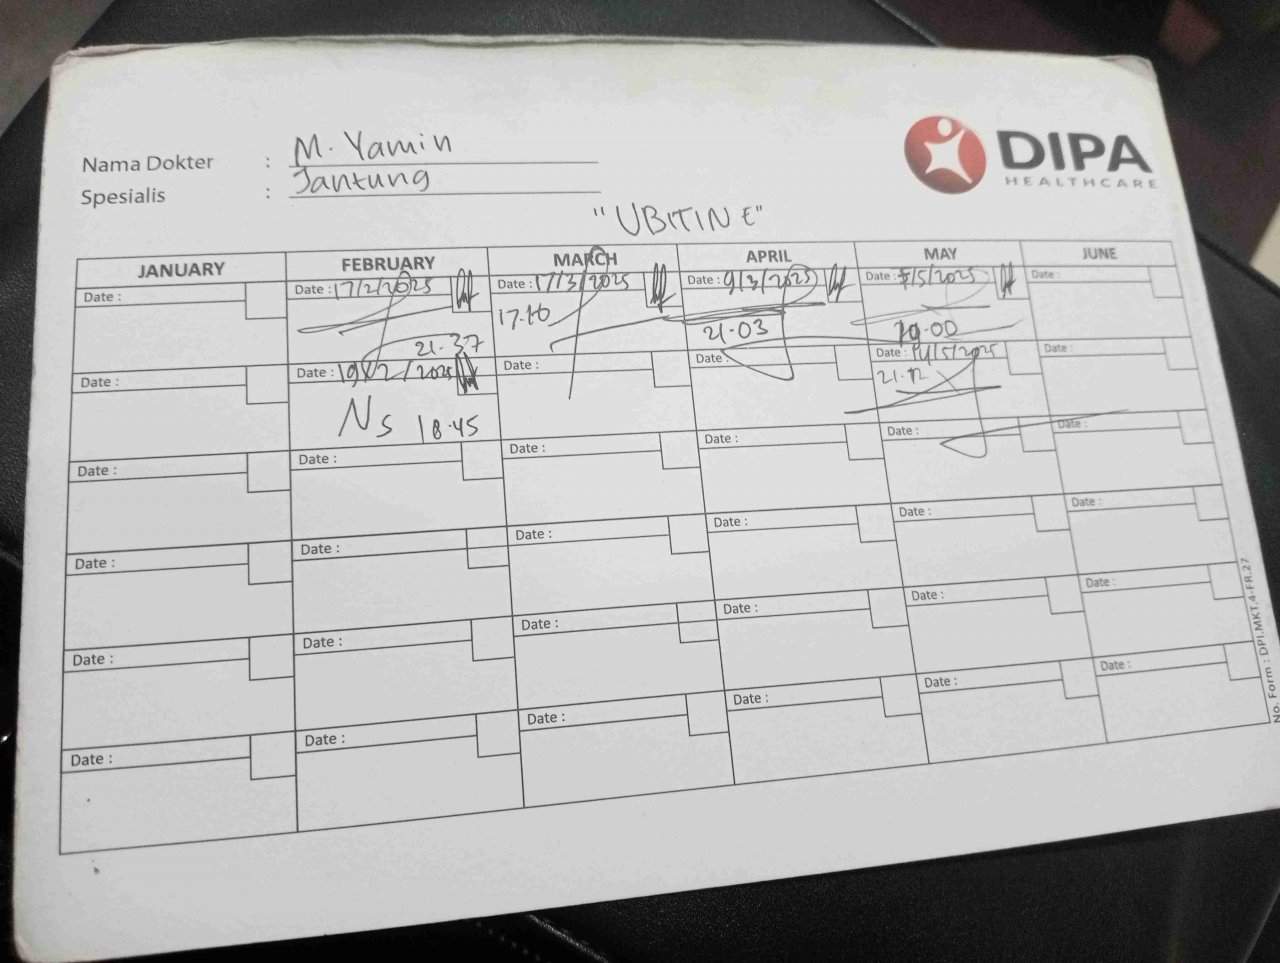 Nama Dokter : M. Yamin
Spesialis : Jantung
DIPA
HEALTHCARE
"UBITINE"
JANUARY FEBRUARY MARCH APRIL MAY JUNE
Date : Date : 17/2/2025 Date : 17/3/2025 Date : 9/3/2025 Date : 7/5/2025 Date :
21.37 17.16 21.03 19.00
Date : Date : 19/2/2025 Date : Date : Date : 14/5/2025 Date :
Ns 18.45 21.12
Date : Date : Date : Date : Date : Date :
Date : Date : Date : Date : Date : Date :
Date : Date : Date : Date : Date : Date :
Date : Date : Date : Date : Date : Date :
No. Form : DPI.MKT.4-FR.27